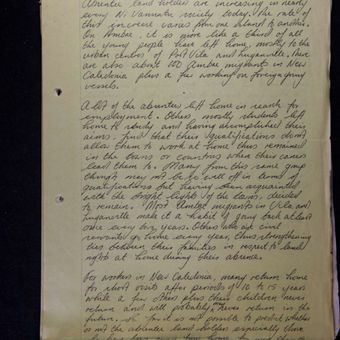 Absentee land holders are increasing in nearly
every N. Vanuatu society today. The rate of
this increase varies from one island to another.
On Ambae, it is more like a third of all
the young people have left home, mostly to the
urban centres of Port Vila and Luganville. There
are also about 200 Ambae migrants in New
Caledonia plus a few working on foreign going
vessels.
A lot of the absentees left home in search for
employment. Others, mostly students left
home to study and having accomplished their
aims, find that their qualifications don't
allow them to work at home thus remained
in the towns or countries when their careers
lead them to. Many from this same group
though may not be so well off in terms of
qualifications but having been acquainted
with the bright lights of the towns, decided
to remain. Most Ambae migrants in Vila and
Luganville make it a habit of going back at least
once every two years. Others who are civil
servants go home every year, thus strengthening
ties between their families in respect to land
rights at home during their absence.
For workers in New Caledonia, many return home
for short visits after periods of 10 to 15 years
while a few others plus their children never
return and will probably never return in the
future. So far it is not possible to predict whether
or not the absentee land holders especially those